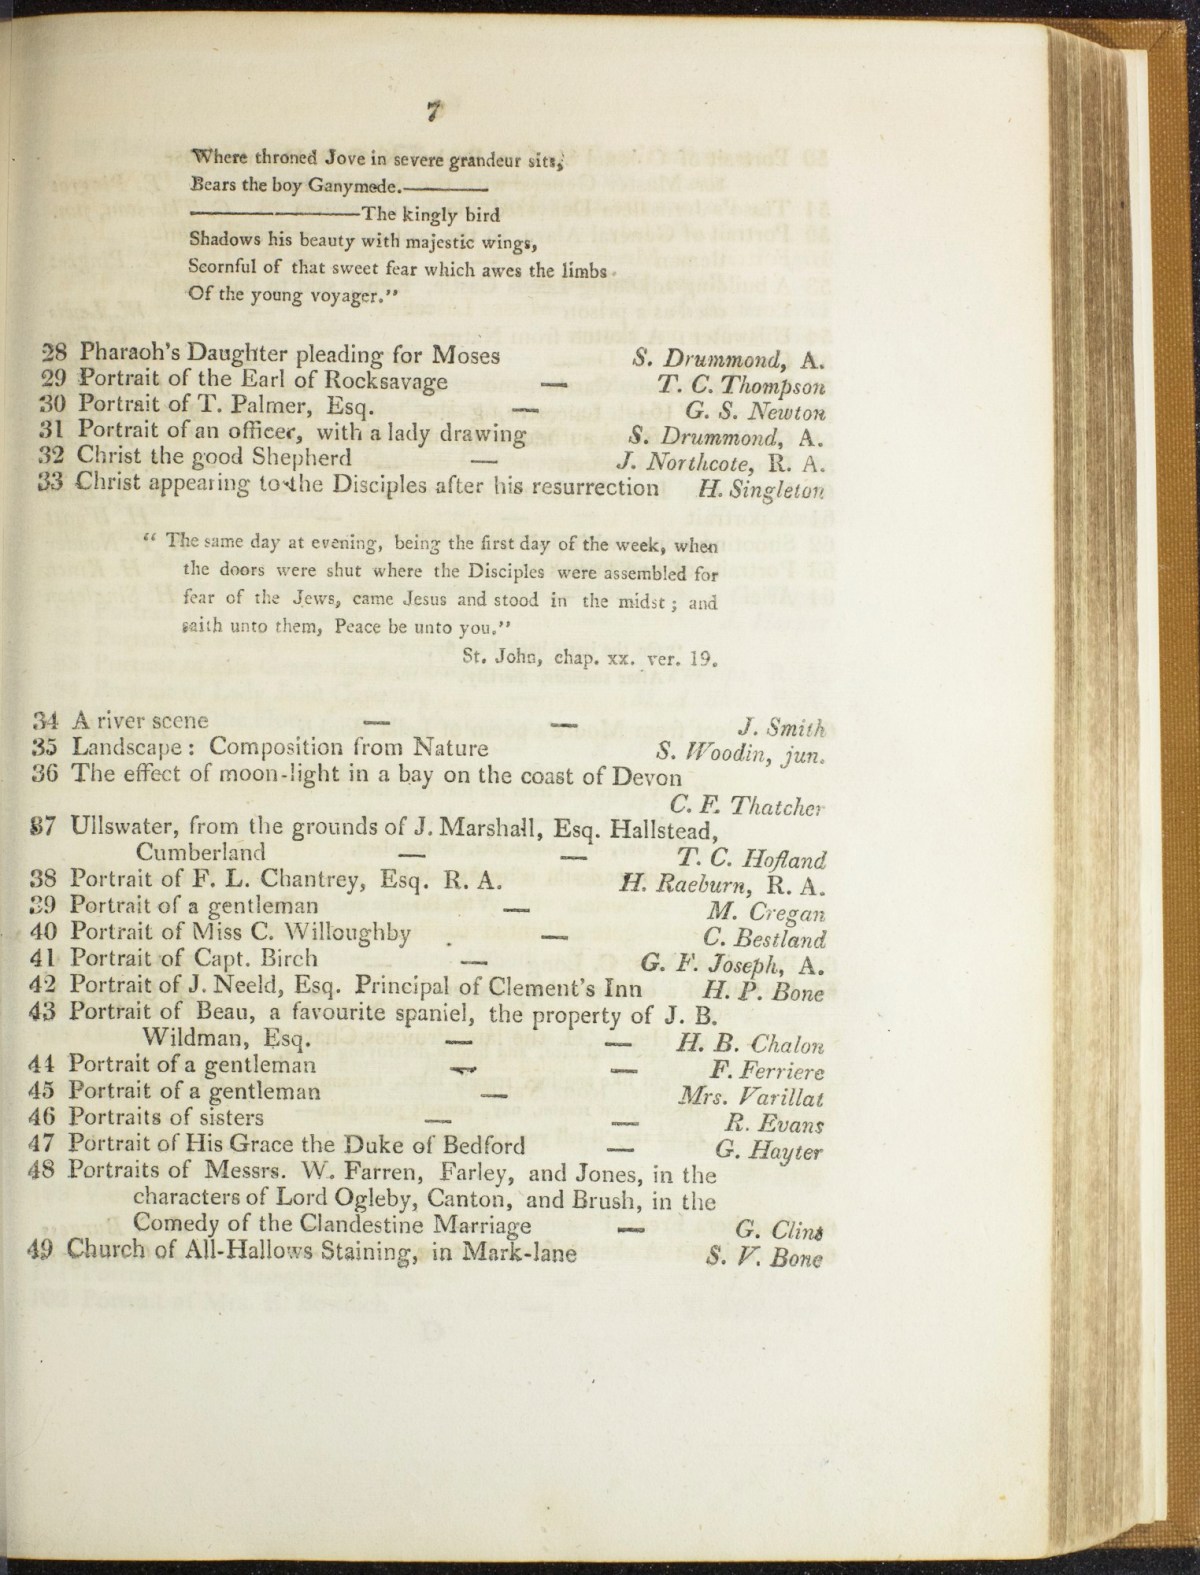 7
Where throned Jove in severe grandeur sits,
Bears the boy Ganymede.————
————————The kingly bird
Shadows his beauty with majestic wings,
Scornful of that sweet fear which awes the limbs
Of the young voyager."
28 Pharaoh's Daughter pleading for Moses S. Drummond, A.
29 Portrait of the Earl of Rocksavage — T. C. Thompson
30 Portrait of T. Palmer, Esq. — G. S. Newton
31 Portrait of an officer, with a lady drawing S. Drummond, A.
32 Christ the good Shepherd — J. Northcote, R. A.
33 Christ appearing to the Disciples after his resurrection H. Singleton
" The same day at evening, being the first day of the week, when
the doors were shut where the Disciples were assembled for
fear of the Jews, came Jesus and stood in the midst ; and
saith unto them, Peace be unto you."
St. John, chap. xx. ver. 19.
34 A river scene — — J. Smith
35 Landscape : Composition from Nature S. Woodin, jun.
36 The effect of moon-light in a bay on the coast of Devon
C. F. Thatcher
37 Ullswater, from the grounds of J. Marshall, Esq. Hallstead,
Cumberland — — T. C. Hofland
38 Portrait of F. L. Chantrey, Esq. R. A. H. Raeburn, R. A.
39 Portrait of a gentleman — M. Cregan
40 Portrait of Miss C. Willoughby — C. Bestland
41 Portrait of Capt. Birch — G. F. Joseph, A.
42 Portrait of J. Neeld, Esq. Principal of Clement's Inn H. P. Bone
43 Portrait of Beau, a favourite spaniel, the property of J. B.
Wildman, Esq. — — H. B. Chalon
44 Portrait of a gentleman — — F. Ferriere
45 Portrait of a gentleman — Mrs. Varillat
46 Portraits of sisters — — R. Evans
47 Portrait of His Grace the Duke of Bedford — G. Hayter
48 Portraits of Messrs. W. Farren, Farley, and Jones, in the
characters of Lord Ogleby, Canton, and Brush, in the
Comedy of the Clandestine Marriage — G. Clint
49 Church of All-Hallows Staining, in Mark-lane S. V. Bone